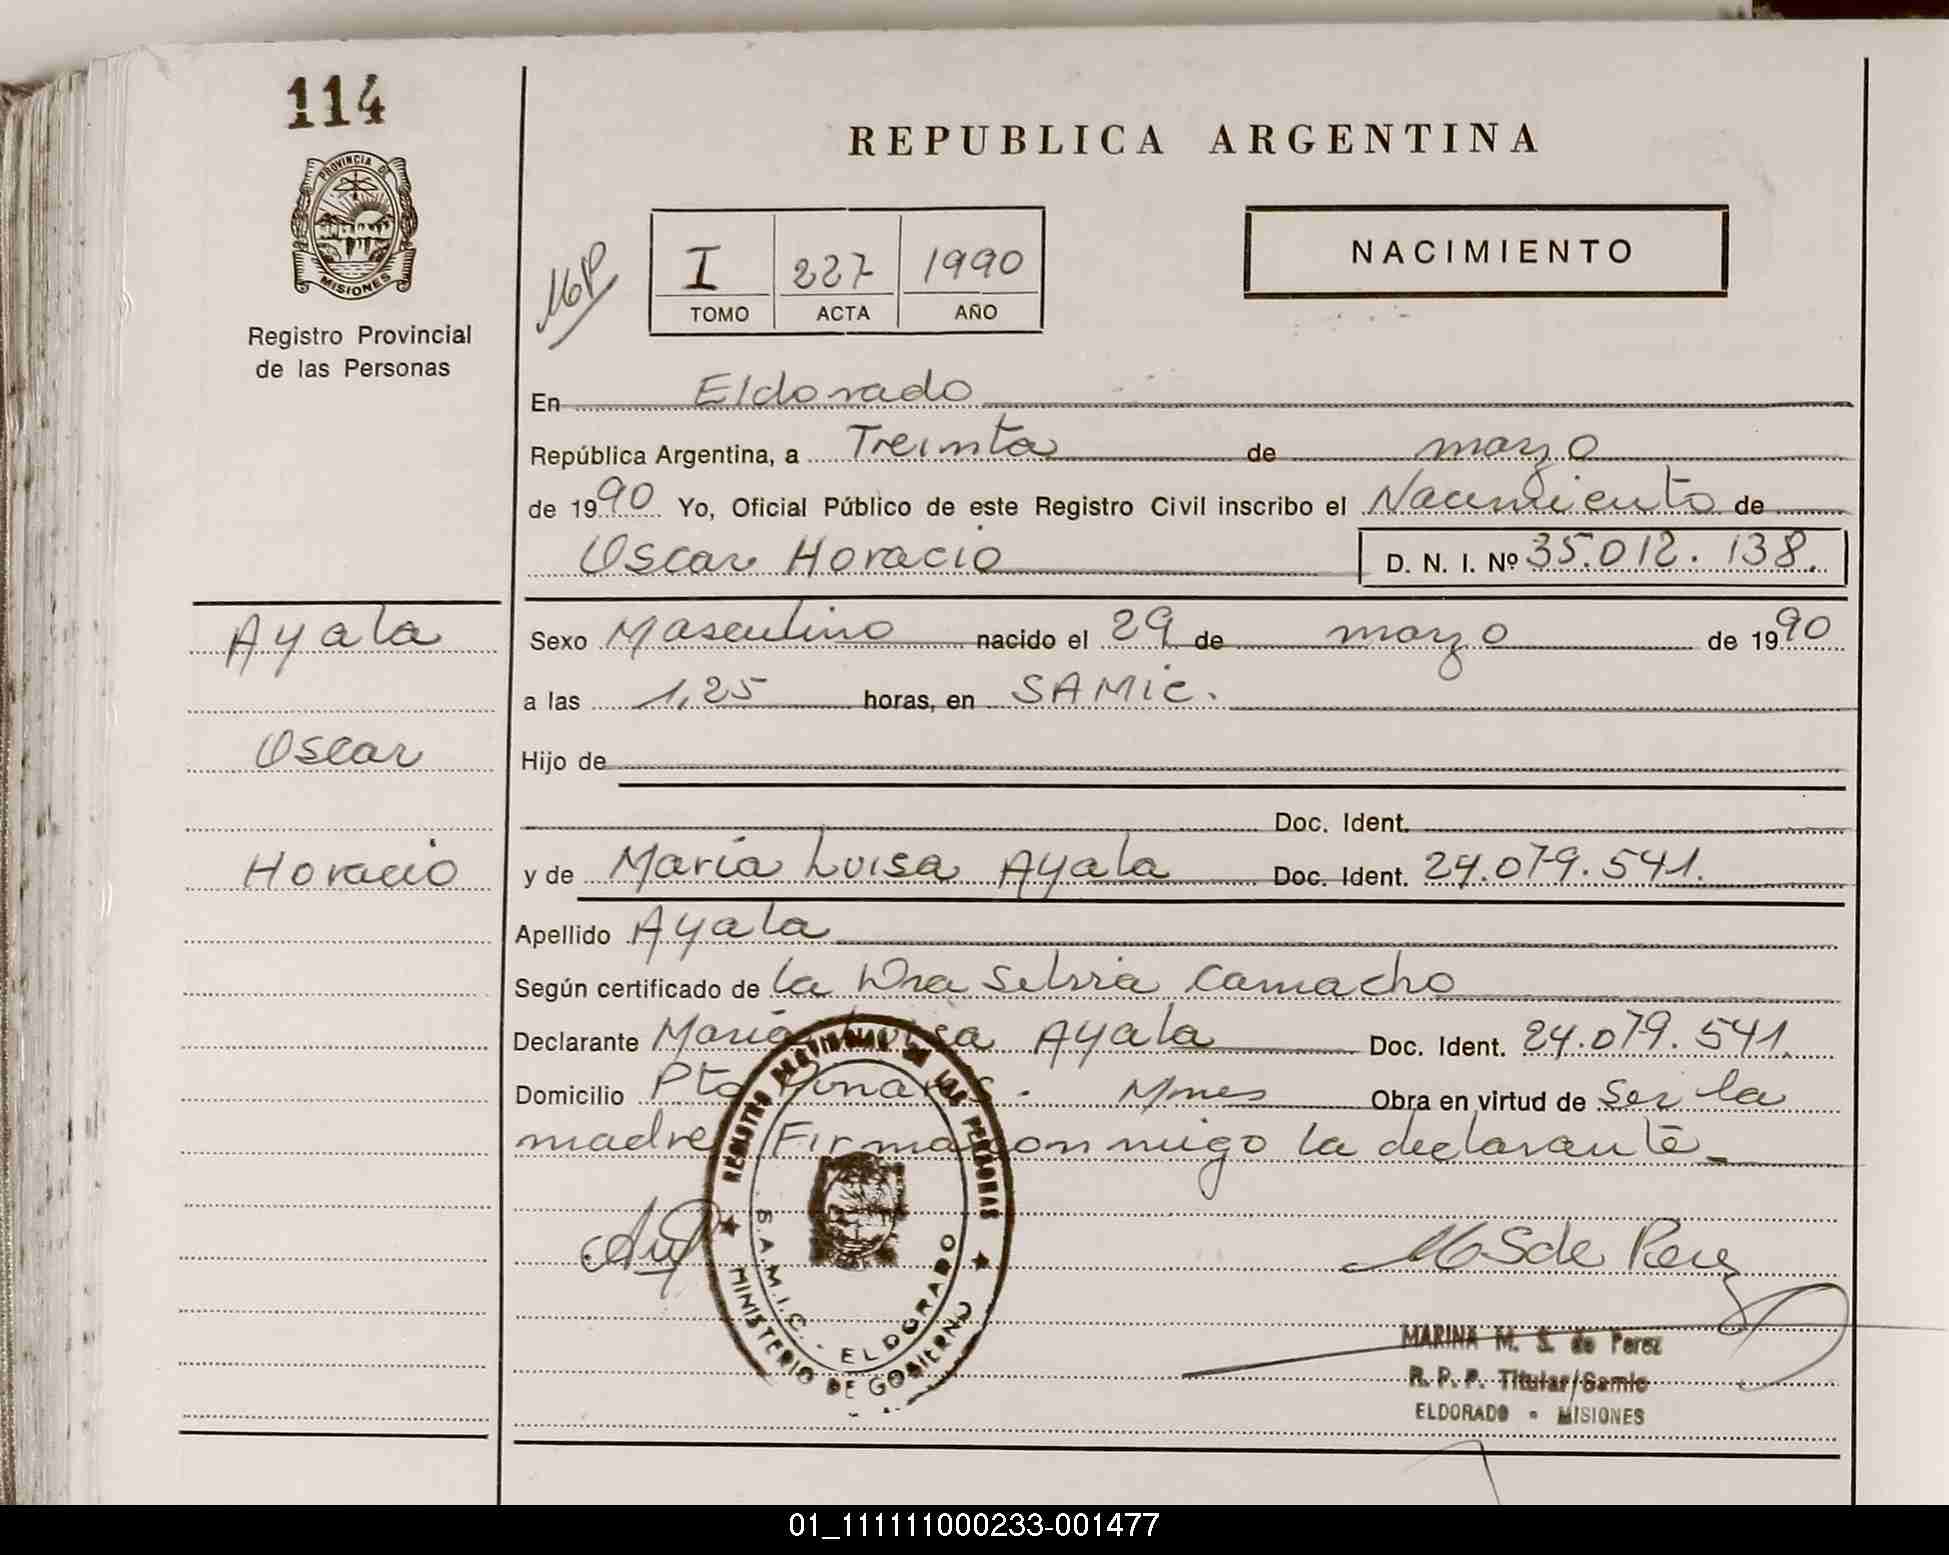 114
PROVINCIA DE
MISIONES
Registro Provincial
de las Personas
REPUBLICA ARGENTINA
I 227 1990
TOMO ACTA AÑO
NACIMIENTO
En Eldorado
República Argentina, a Treinta de marzo
de 1990 Yo, Oficial Público de este Registro Civil inscribo el Nacimiento de
Oscar Horacio D. N. I. Nº 35.012.138.
Ayala
Oscar
Horacio
Sexo Masculino nacido el 29 de marzo de 1990
a las 1,25 horas, en SAMIC.
Hijo de
Doc. Ident.
y de María Luisa Ayala Doc. Ident. 24.079.541.
Apellido Ayala
Según certificado de la Dra Silvia Camacho
Declarante María Luisa Ayala Doc. Ident. 24.079.541.
Domicilio Pto Mnes Obra en virtud de ser la
madre Firma conmigo la declarante
REGISTRO PROVINCIAL DE LAS PERSONAS
S.A.M.I.C. - ELDORADO
MINISTERIO DE GOBIERNO
MS de Perez
MARINA M. S. de Perez
R. P. P. Titular/Samic
ELDORADO - MISIONES
01_111111000233-001477